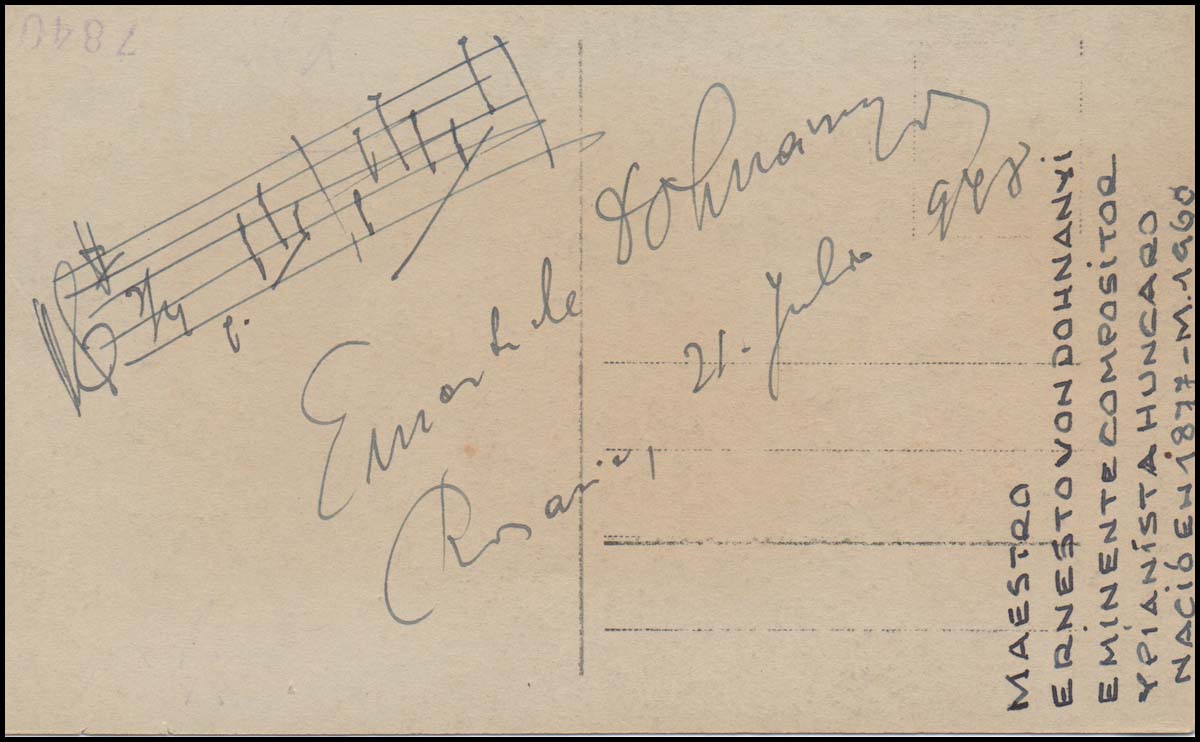 7840
2/4
Ernesto de Dohnanyi
Rosario, 21. Julio 948
MAESTRO
ERNESTO VON DOHNANYI
EMINENTE COMPOSITOR
Y PIANÍSTA HUNGARO
NACIÓ EN 1877-M.1960